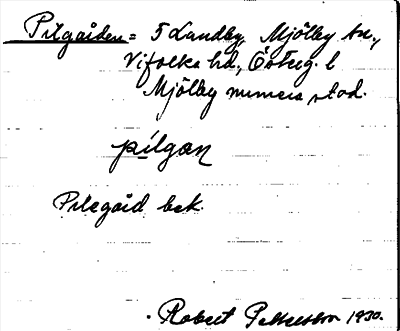 Pilgården = 5 Lundby, Mjölby sn.,
Vifolka hd, Östug. l
Mjölby numera stad.
pilgan
Pilegård bek.
Robert Pettersson 1930.